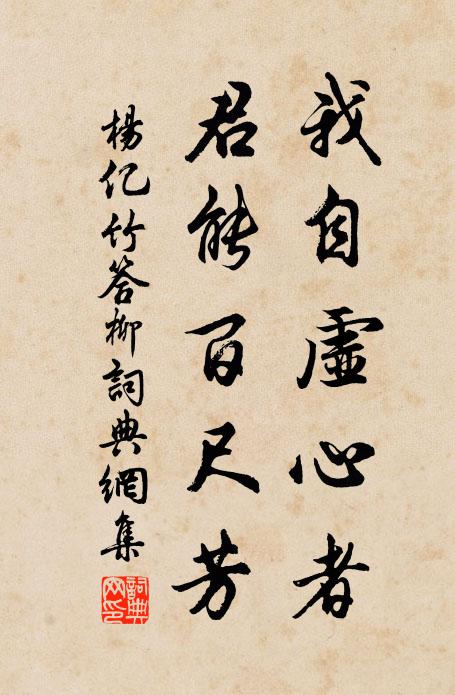 我自虛心者
君能百尺芳
楊億竹答柳詞典網集
詞典網印